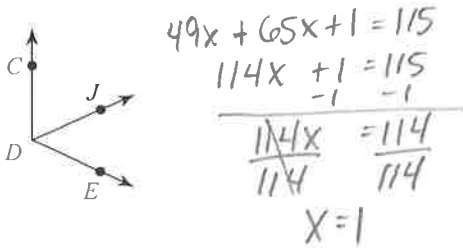 C
J
D
E
49x + 65x + 1 = 115
114x + 1 = 115
-1 -1
114x = 114
114 114
x = 1